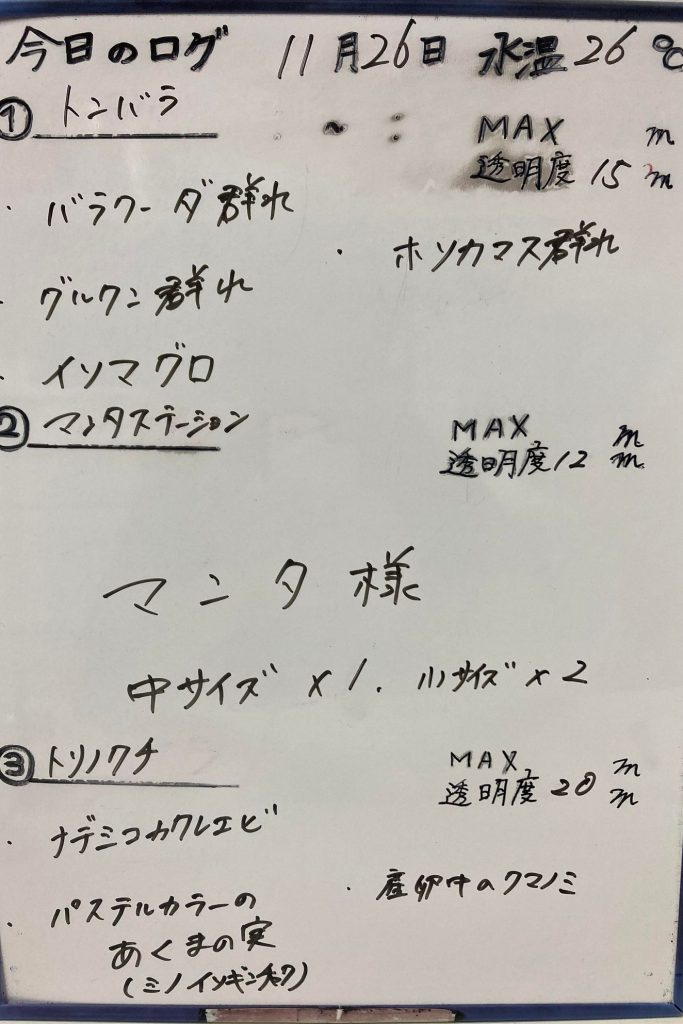 今日のログ 11月26日 水温26℃
① トンバラ
MAX m
透明度 15 m
・バラクーダ群れ
・ホソカマス群れ
・グルクン群れ
・イソマグロ
② マンタステーション
MAX m
透明度12 m
マンタ様
中サイズ×1. 小サイズ×2
③ トリノクチ
MAX m
透明度 20 m
・ナデシコカクレエビ
・産卵中のクマノミ
・パステルカラーの
あくまの実
(ミノイソギンチャク)